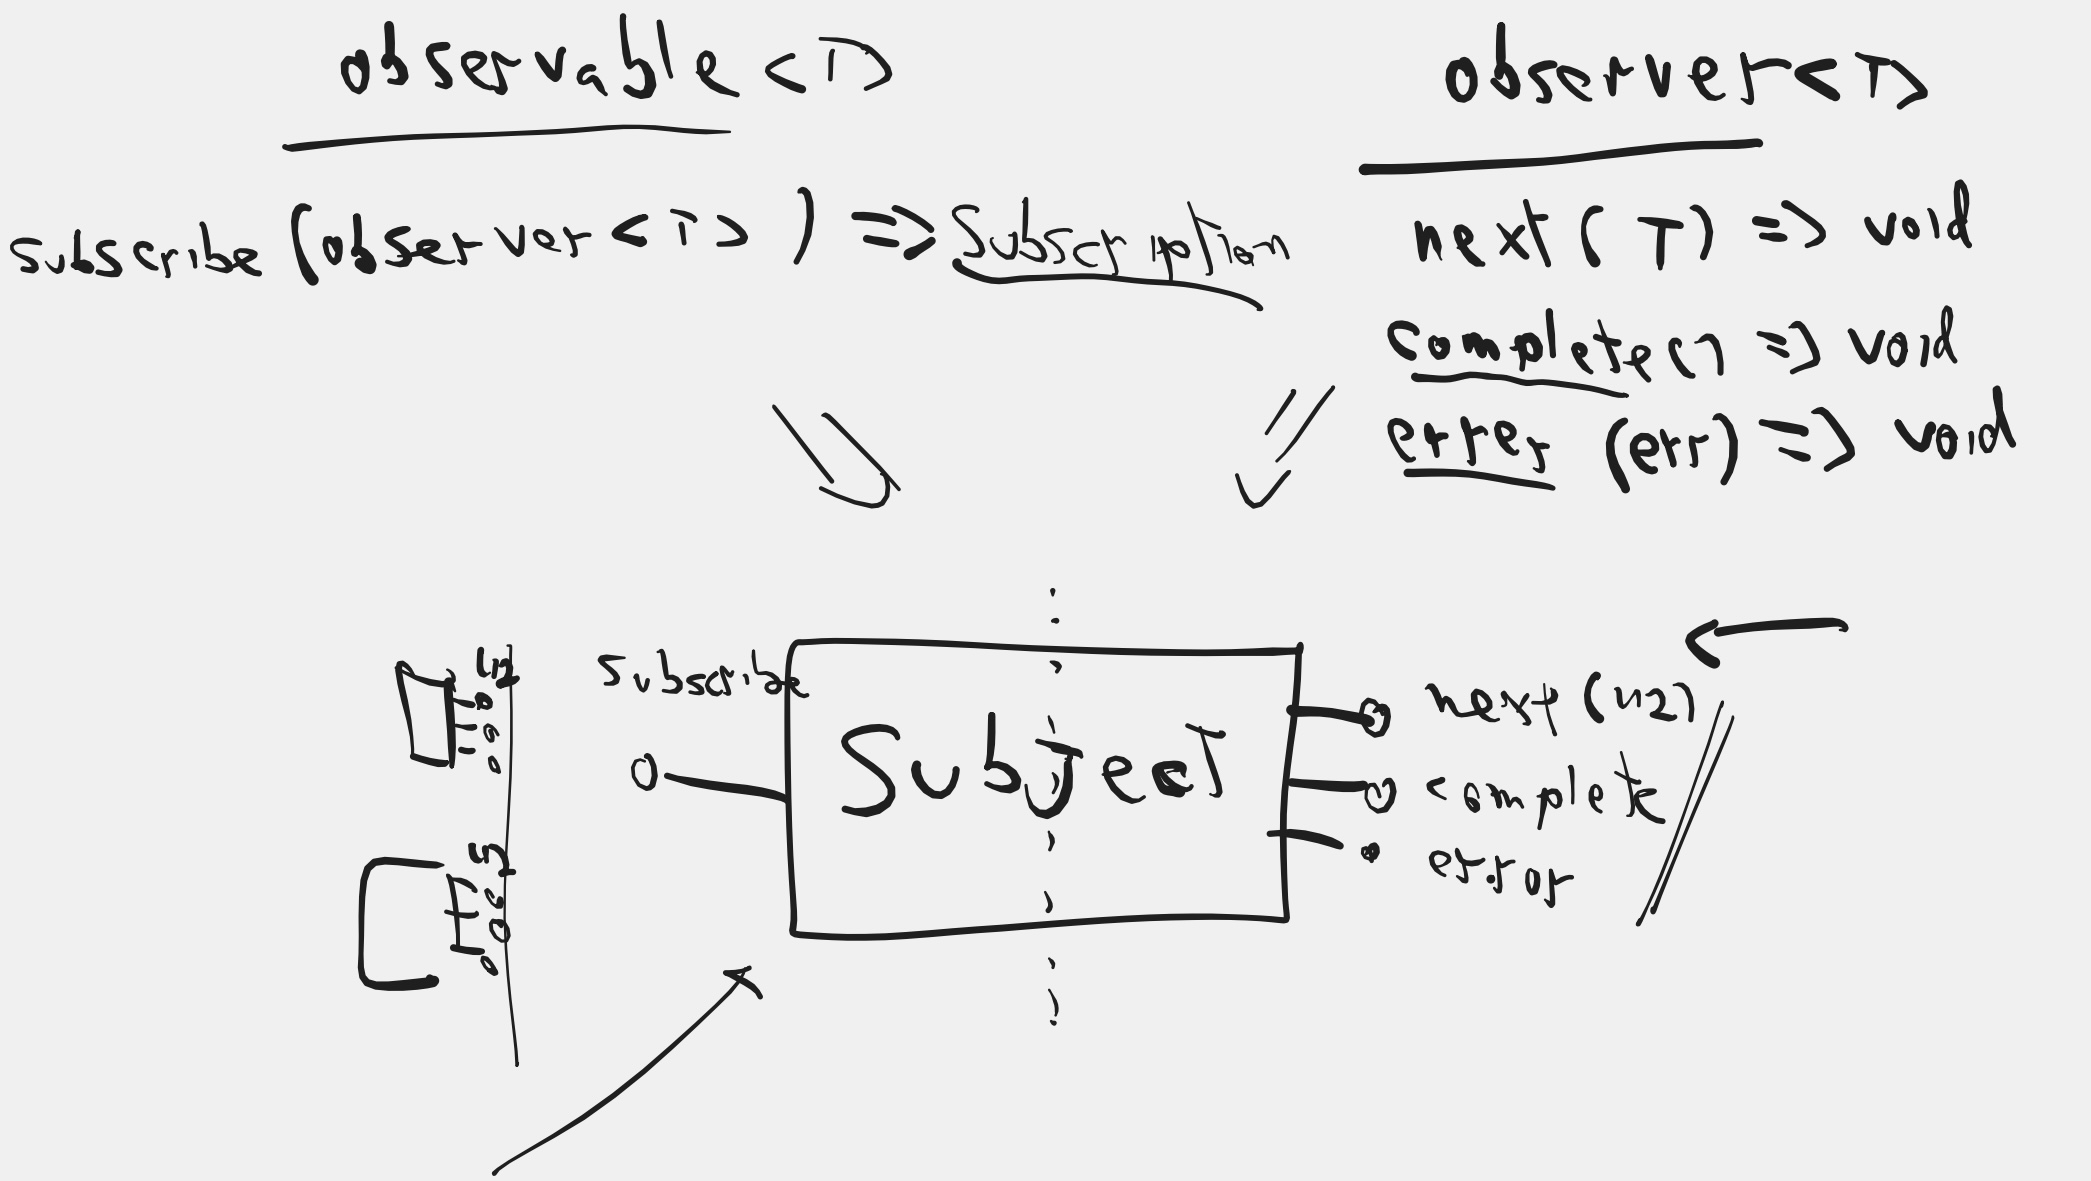 observable<T>
observer<T>
subscribe (observer<T>) => Subscription
next(T) => void
complete() => void
error (err) => void
subscribe
Subject
next (42)
complete
error